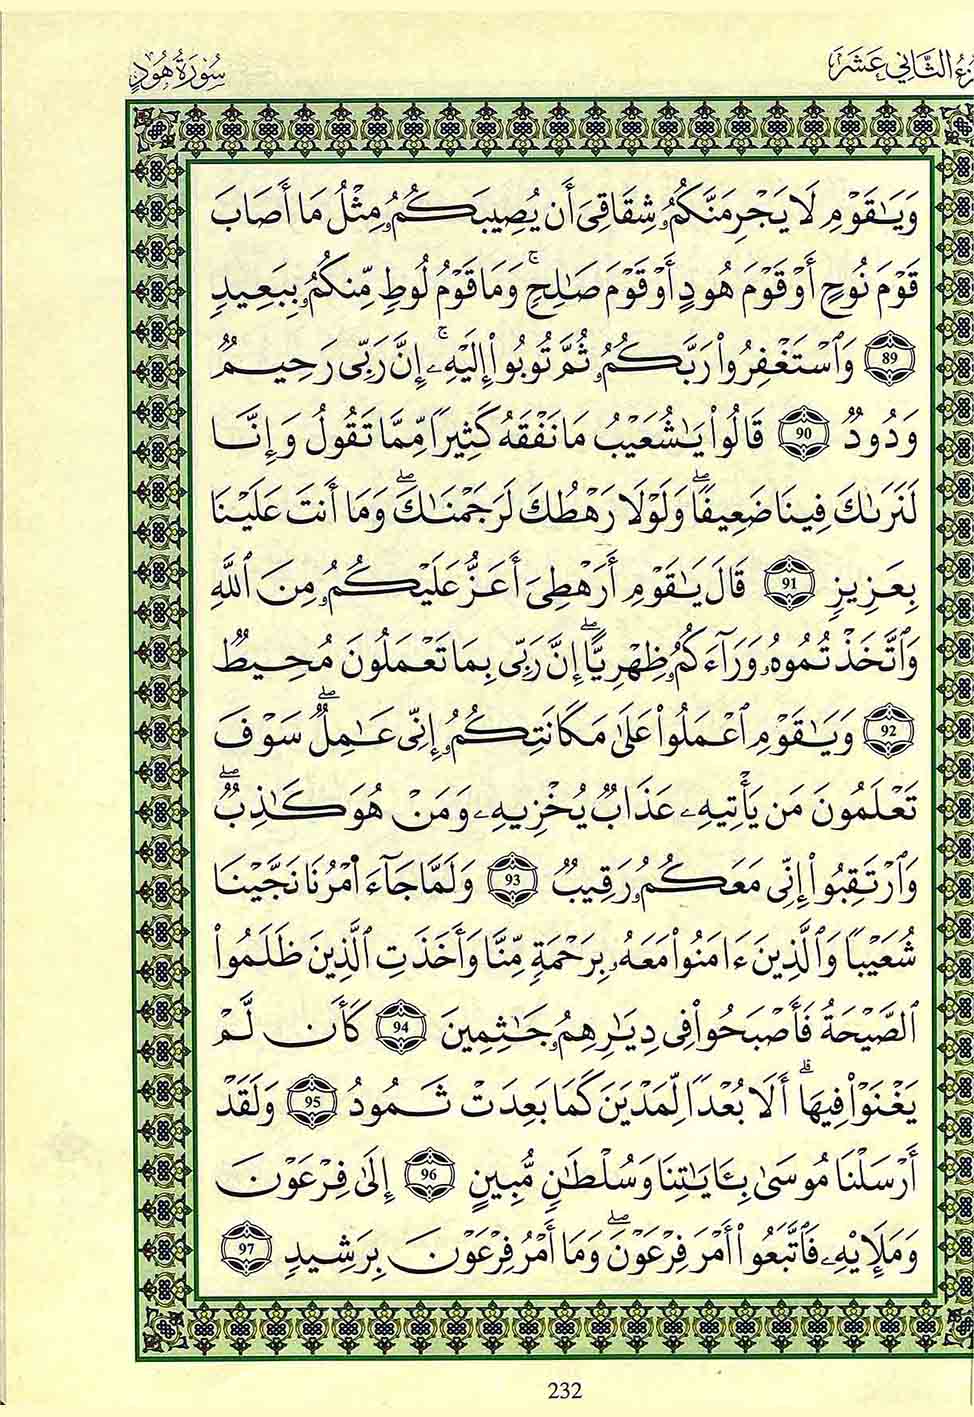 زء الثَّانِي عَشَرَ
سُورَةُ هُودٍ
وَيَٰقَوْمِ لَا يَجْرِمَنَّكُمُۥ شِقَاقِىَ أَن يُصِيبَكُمُۥ مِثْلُ مَا أَصَابَ
قَوْمَ نُوحٍ أَوْ قَوْمَ هُودٍ أَوْ قَوْمَ صَٰلِحٍ ۚ وَمَا قَوْمُ لُوطٍ مِّنكُمُۥ بِبَعِيدٍ
89 وَٱسْتَغْفِرُواْ رَبَّكُمُۥ ثُمَّ تُوبُواْ إِلَيْهِۦ ۚ إِنَّ رَبِّى رَحِيمٌ
وَدُودٌ 90 قَالُواْ يَٰشُعَيْبُ مَا نَفْقَهُ كَثِيرًا مِّمَّا تَقُولُ وَإِنَّا
لَنَرَىٰكَ فِينَا ضَعِيفًا ۖ وَلَوْلَا رَهْطُكَ لَرَجَمْنَٰكَ ۖ وَمَا أَنتَ عَلَيْنَا
بِعَزِيزٍ 91 قَالَ يَٰقَوْمِ أَرَهْطِىَ أَعَزُّ عَلَيْكُمُۥ مِنَ ٱللَّهِ
وَٱتَّخَذْتُمُوهُۥ وَرَآءَكُمُۥ ظِهْرِيًّا ۖ إِنَّ رَبِّى بِمَا تَعْمَلُونَ مُحِيطٌ
92 وَيَٰقَوْمِ ٱعْمَلُواْ عَلَىٰ مَكَانَتِكُمُۥ إِنِّى عَٰمِلٌ ۖ سَوْفَ
تَعْلَمُونَ مَن يَأْتِيهِۦ عَذَابٌ يُخْزِيهِۦ وَمَنْ هُوَ كَٰذِبٌ ۖ
وَٱرْتَقِبُواْ إِنِّى مَعَكُمُۥ رَقِيبٌ 93 وَلَمَّا جَآءَ امْرُنَا نَجَّيْنَا
شُعَيْبًا وَٱلَّذِينَ ءَامَنُواْ مَعَهُۥ بِرَحْمَةٍ مِّنَّا وَأَخَذَتِ ٱلَّذِينَ ظَلَمُواْ
ٱلصَّيْحَةُ فَأَصْبَحُواْ فِى دِيَٰرِهِمُۥ جَٰثِمِينَ 94 كَأَن لَّمْ
يَغْنَوْاْ فِيهَا ۗ أَلَا بُعْدًا لِّمَدْيَنَ كَمَا بَعِدَتْ ثَمُودُ 95 وَلَقَدْ
أَرْسَلْنَا مُوسَىٰ بِـَٔايَٰتِنَا وَسُلْطَٰنٍ مُّبِينٍ 96 إِلَىٰ فِرْعَوْنَ
وَمَلَإِيْهِۦ فَٱتَّبَعُواْ أَمْرَ فِرْعَوْنَ ۖ وَمَا أَمْرُ فِرْعَوْنَ بِرَشِيدٍ 97
232